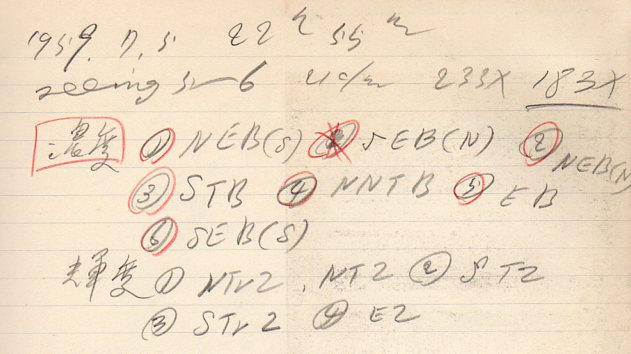 1959. 7. 5 22h 55m
seeing 5~6 21c/m 233X 183X
濃度 ① NEB(S) ② SEB(N) ② NEB(N)
③ STB ④ NNTB ⑤ EB
⑥ SEB(S)
輝度 ① NTrZ, NTZ ② STZ
③ STrZ ④ EZ